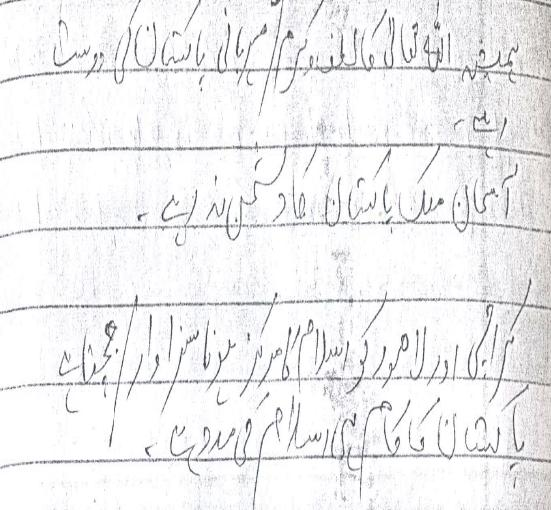 ہمیشہ اللہ تعالیٰ کا لطف و کرم / مہربانی پاکستان کی دوست
رہے۔
آسمان ملک پاکستان کا دشمن نہ رہے۔
کراچی اور لاہور کو اسلام کا مرکز ہونا سزاوار / جچتا ہے
پاکستان کا کام ہی اسلام کی مدد ہے۔